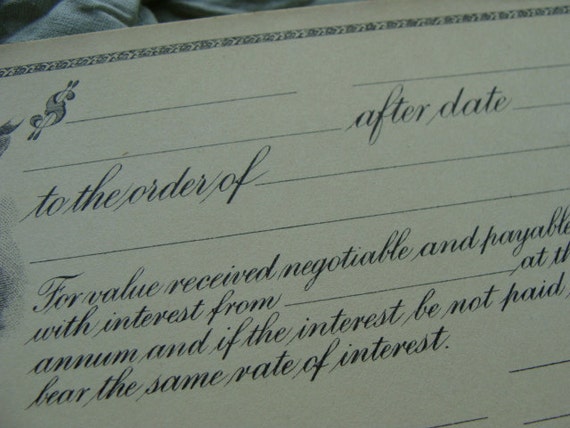 $
after date
to the order of
For value received negotiable and payable
with interest from at th
annum and if the interest be not paid
bear the same rate of interest.